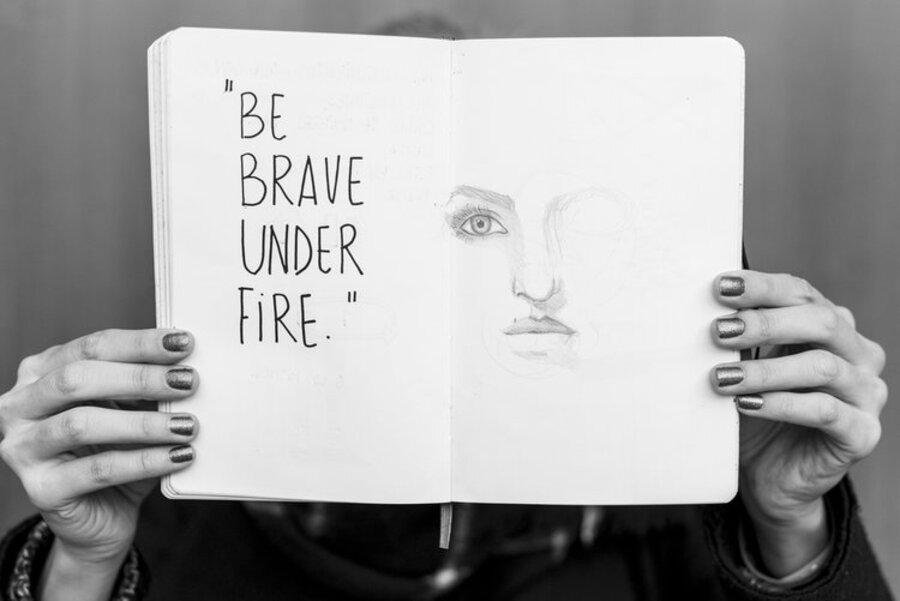 "BE
BRAVE
UNDER
FiRE."